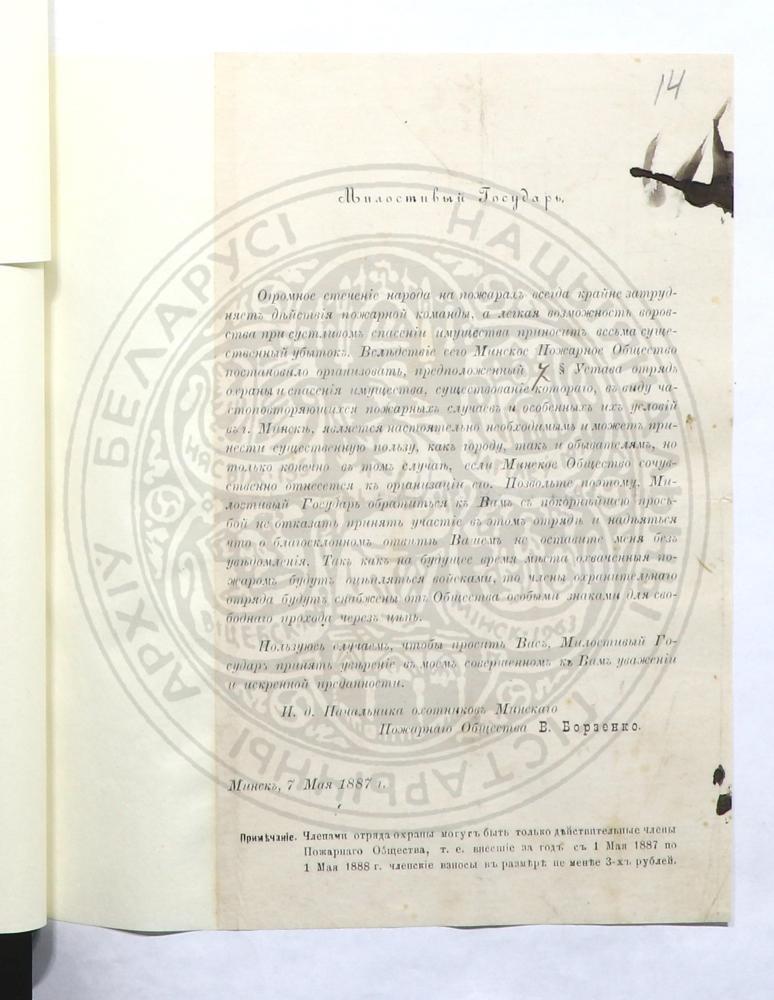 14
Милостивый Государь,
Огромное стеченіе народа на пожарахъ всегда крайне затруд-
няетъ дѣйствія пожарной команды, а легкая возможность воров-
ства при суетливомъ спасеніи имущества приноситъ весьма суще-
ственный убытокъ. Вслѣдствіе сего Минское Пожарное Общество
постановило организовать, предположенный 7 § Устава отрядъ
охраны и спасенія имущества, существованіе котораго, въ виду ча-
стоповторяющихся пожарныхъ случаевъ и особенныхъ ихъ условій
въ г. Минскѣ, является настоятельно необходимымъ и можетъ при-
нести существенную пользу, какъ городу, такъ и обывателямъ, но
только конечно въ томъ случаѣ, если Минское Общество сочув-
ственно отнесется къ организаціи его. Позвольте поэтому, Ми-
лостивый Государь обратиться къ Вамъ съ покорнѣйшею прось-
бой не отказать принять участіе въ этомъ отрядѣ и надѣяться
что о благосклонномъ отвѣтѣ Вашемъ не оставите меня безъ
увѣдомленія. Такъ какъ на будущее время мѣста охваченныя по-
жаромъ будутъ оцѣпляться войсками, то члены охранительнаго
отряда будутъ снабжены отъ Общества особыми знаками для сво-
боднаго прохода черезъ цѣпь.
Пользуюсь случаемъ, чтобы просить Васъ, Милостивый Го-
сударь принять увѣреніе въ моемъ совершенномъ къ Вамъ уваженіи
и искренной преданности.
И. д. Начальника охотниковъ Минскаго
Пожарнаго Общества В. Борзенко.
Минскъ, 7 Мая 1887 г.
Примѣчаніе. Членами отряда охраны могутъ быть только дѣйствительные члены
Пожарнаго Общества, т. е. внесшіе за годъ съ 1 Мая 1887 по
1 Мая 1888 г. членскіе взносы въ размѣрѣ не менѣе 3-хъ рублей.
НАЦЫЯНАЛЬНЫ ГІСТАРЫЧНЫ АРХІЎ БЕЛАРУСІ